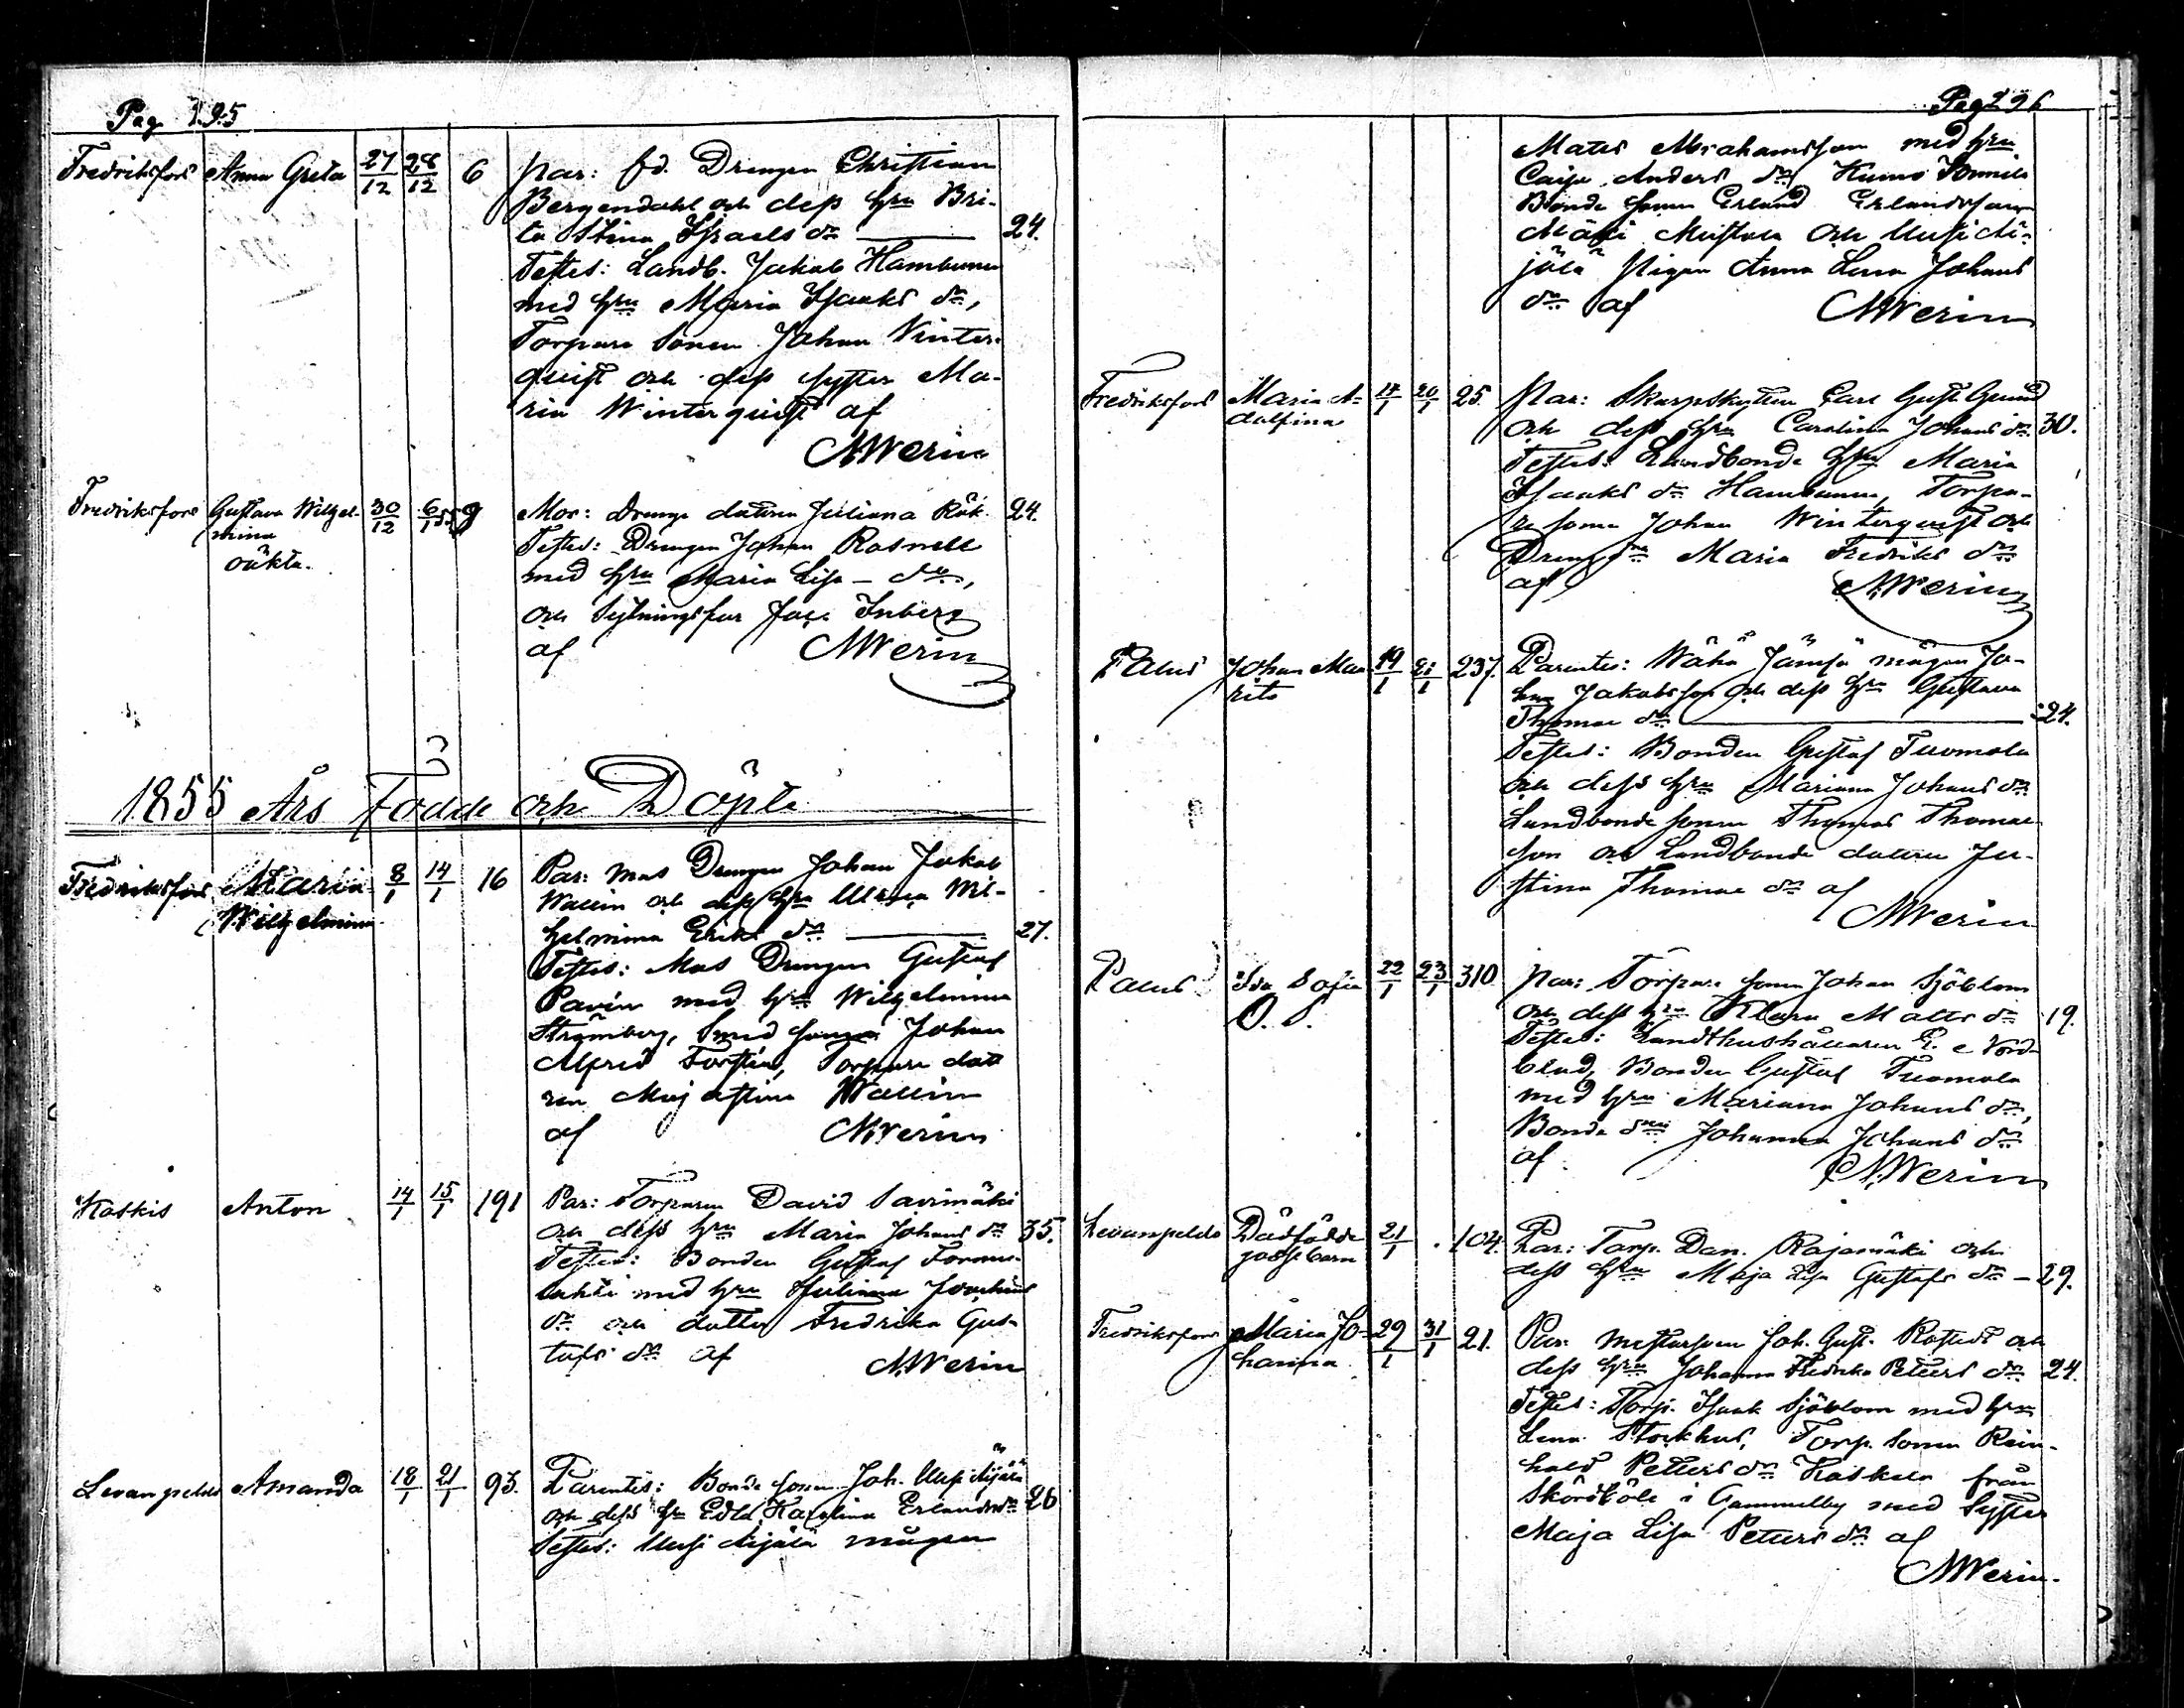 Pag 195
Fredriksfors Anna Greta 27/12 28/12 6 Par: fd. Drengen Christian
Bergendahl och dess hru Bri-
ta Stina Israels dr 24.
Testes: Landb. Jakob
med hru Maria Isaaks dr,
Torpare Sonen Johan Winter-
quist och dess syster Ma-
ria Winterquist af
Werin
Fredriksfors Gustava Wilhel- 30/12 6/1 55 9 Mor: Drenge dattren Juliana 24.
mina Testes: Drengen Johan Rosnell
oäkta. med hru Maria Lisa dr,
och Inberg
af Werin
1855 Års Födde och Döpte
Fredriksfors Maria 8/1 14/1 16 Par: Mas Drengen Johan Jakob
Wilhelmina Wallin och dess hru Wil-
helmina Eriks dr 27.
Testes: Mas Drengen Gustaf
Pavén med hru Wilhelmina
Strömberg, Smed sonen Johan
Alfred Forstén, Torpare dott
ren Maja Stina Wallin
af Werin
Koskis Anton 14/1 15/1 191 Par: Torparen David Savimäki
och dess hru Maria Johans dr 35.
Testes: Bonden Gustaf
lahti med hru Juliana
dr och dotter Fredrika Gus-
tafs dr af Werin
Levanpelds Amanda 18/1 21/1 93. Parentes: Bonde sonen Joh. Uusi Äijälä
och dess hru Edla Karolina Erlands dr 26
Testes: Uusi Äijälä mågen
Pag 196
Mats Abrahamsson med hru
Caisa Anders dr
Bonde sonen Erland Erlandsson
och Uusi Äi-
jälä Pigan Anna Lena Johans
dr af Werin
Fredriksfors Maria A- 17/1 20/1 25. Par: Skarpskytten Carl Gust.
dolfina och dess hru Carolina Johans dr 30.
Testes: Landbonde hru Maria
Isaaks dr Torpa-
re sonen Johan Winterquist och
Dreng dr Maria Fredriks dr
af Werin
Palus Johan Mau- 19/1 21/1 237. Parentes: Wähä Jämsä mågen Jo-
rits han Jakobsson och dess hru Gustava
Thomae dr 24.
Testes: Bonden Gustaf Tuomola
och dess hru Mariana Johans dr
Landbonde sonen Thomas Thomae
son och Landbonde dattren Ju-
stina Thomae dr af
Werin
Palus Ida Sofia 22/1 23/1 310 Par: Torpare sonen Johan Sjöblom
O. S. och dess hru Matts dr 19.
Testes: Landthushållaren E. Nord-
blad, Bonden Gustaf Tuomola
med hru Mariana Johans dr,
Bonde dr Johanna Johans dr
af Werin
Levanpelds Dödfödde 21/1 104. Par: Torp. Dan. Rajamäki och
gossebarn dess hru Maja Lisa Gustafs dr 29.
Fredriksfors Maria Jo- 29/1 31/1 21. Par: Joh. Gust. och
hanna dess hru Johanna Fredrika Petters dr 24.
Testes: Torp. Isaak Sjöblom med hru
Lena Stockhus, Torp. sonen Rein-
hold Petters dr Koskela från
Skördböle i Gammelby med Syster
Maja Lisa Petters dr af
Werin.